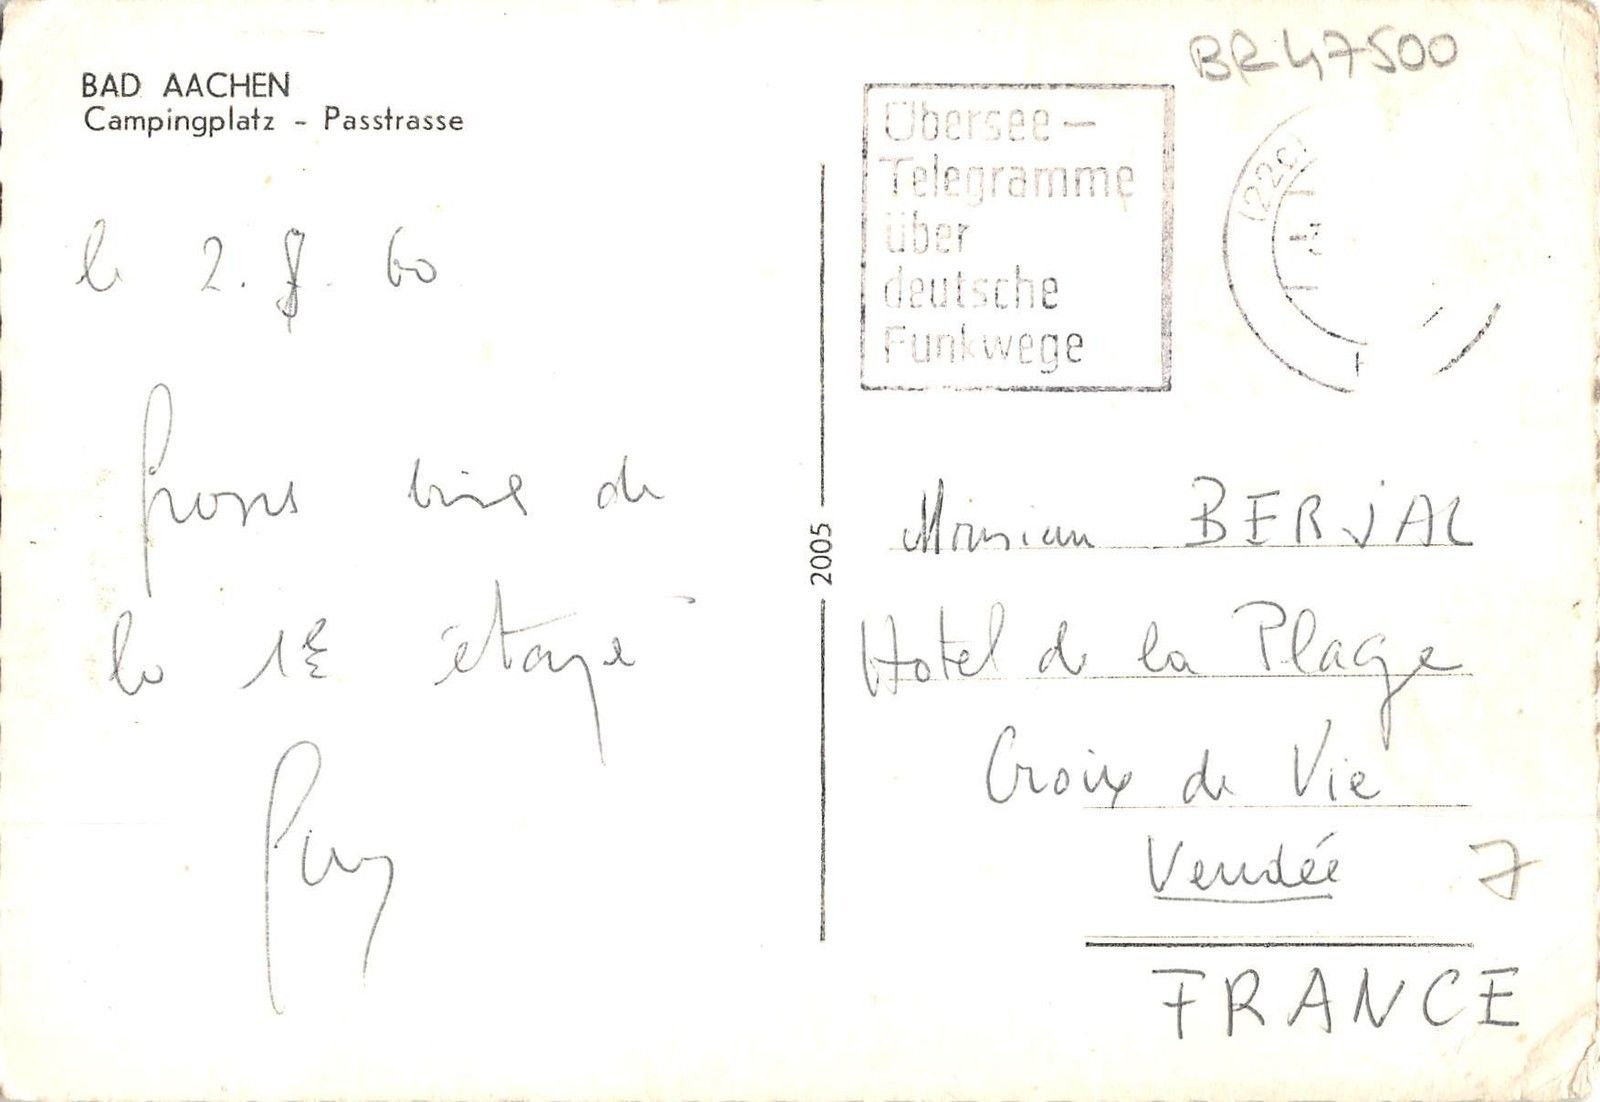 BAD AACHEN
Campingplatz - Passtrasse
le 2. 8. 60
de
la 1e étape
2005
BR47500
Übersee-
Telegramme
über
deutsche
Funkwege
(22c)
Monsieur BERJAL
Hotel de la Plage
Croix de Vie
Vendée 7
FRANCE